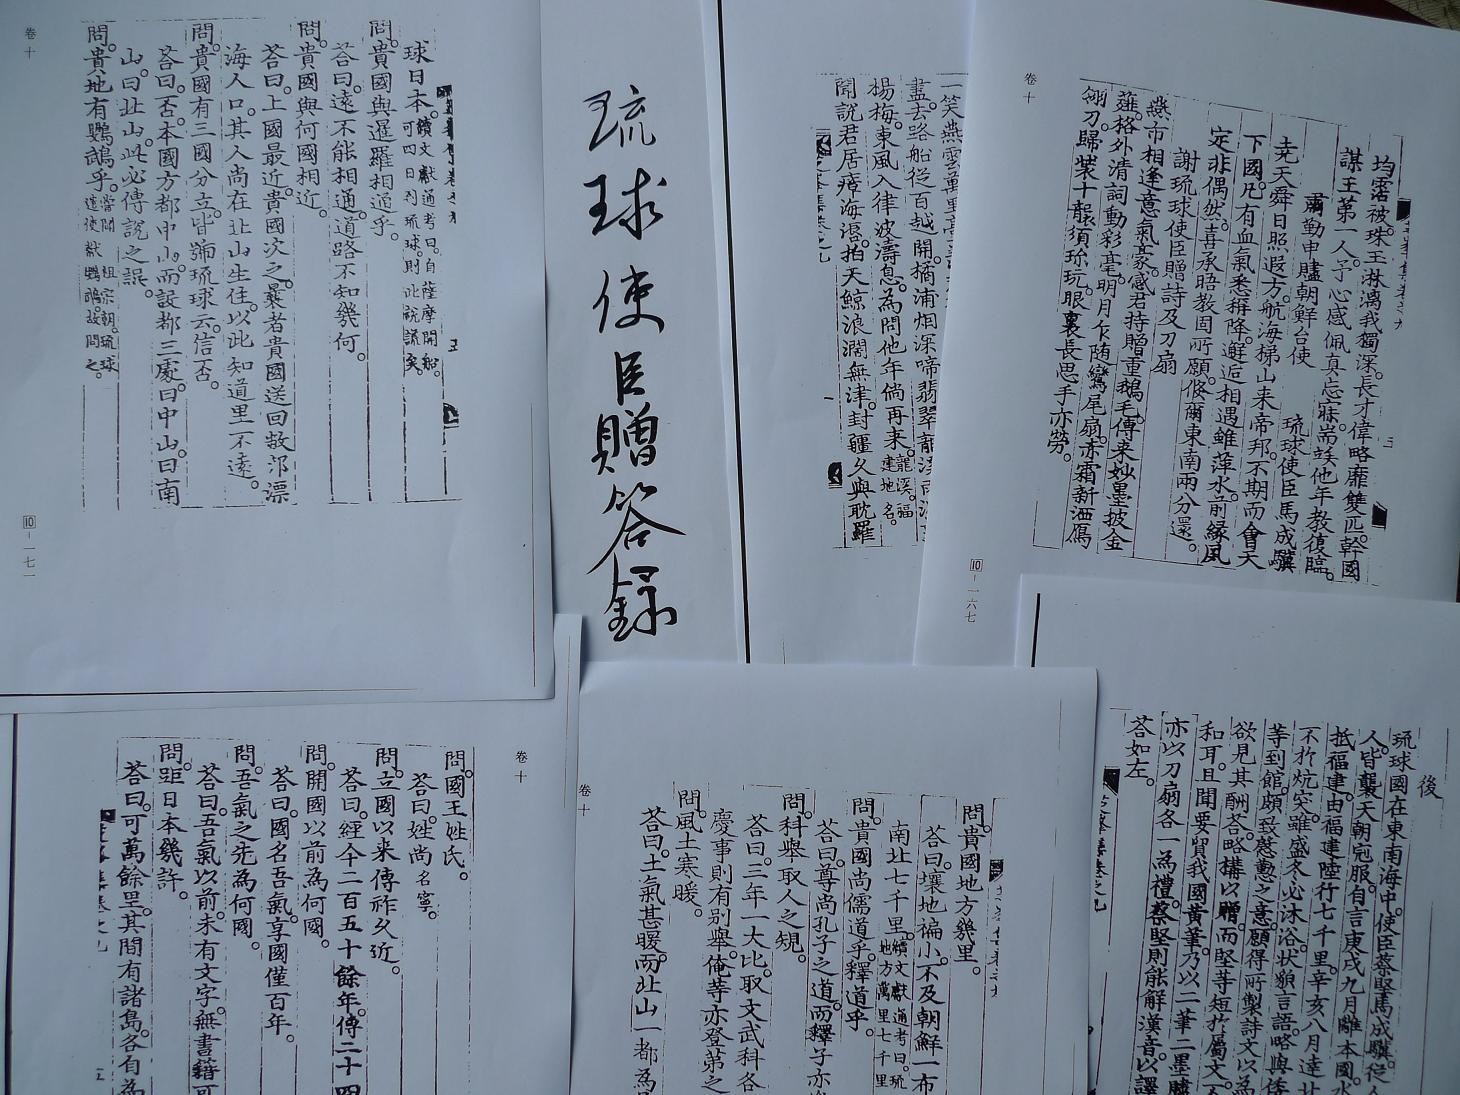 卷十
球日本可四日列琉球則此說謊矣
問。貴國與暹羅相通乎。
荅曰。遠不能相通。道路不知幾何。
問。貴國與何國相近。
荅曰。上國最近。貴國次之。曩者貴國送回敝邦漂
海人口。其人尚在北山生住。以此知道里不遠。
問。貴國有三國分立。皆號琉球云。信否。
荅曰。否。本國方都中山。而設都三處。曰中山。曰南
山。曰北山。此必傳說之誤。
問。貴地有鸚鵡乎。
⑩—一七一
琉球使臣贈答録
盡去路船從百越開。橘浦烟深啼翡翠
楊梅。東風入律波濤息。為問他年倘再來。
聞說君居瘴海濱。拍天鯨浪濶無津。封疆久與耽羅
卷十
均霑被。珠玉淋漓我獨深。長才偉略靡雙匹。幹國
謀王第一人。予心感佩真忘寐。耑竢他年教復臨。
肅勤申贐朝鮮台使　琉球使臣馬成驥
堯天舜日照遐方。航海梯山来帝邦。不期而會天
下國。凡有血氣悉拼降。邂逅相遇雖萍水。前緣風
定非偶然。喜承晤教固所願。倏爾東南兩分還。
謝琉球使臣贈詩及刀扇
燕市相逢意氣豪。感君持贈重鵝毛。傳来妙墨披金
薤。格外清詞動彩毫。明月乍隨鸞尾扇。亦霜新洒鴈
翎刀。歸裝十襲須珎玩。眼裏長思手亦勞。
⑩—一六七
卷十
問。國王姓氏。
荅曰。姓尚名寧。
問。立國以来傳祚久近。
荅曰。經今二百五十餘年。傳二十四
問。開國以前為何國。
荅曰。國名吾氣。享國僅百年。
問。吾氣之先為何國。
荅曰。吾氣以前。未有文字。無書籍可
問。距日本幾許。
荅曰。可萬餘里。其間有諸島。各自為
卷十
問。貴國地方幾里。
荅曰。壤地褊小。不及朝鮮一布
南北七千里。
問。貴國尚儒道乎。釋道乎。
荅曰。尊尚孔子之道。而釋子亦
問。科舉取人之規。
荅曰。三年一大比。取文武科各
慶事則有別舉。俺等亦登第之
問。風土寒暖。
荅曰。土氣甚暖。而北山一都為
後
琉球國在東南海中。使臣蔡堅馬成驥。從人
人皆襲天朝冠服。自言庚戌九月離本國。水
抵福建。由福建陸行七千里。辛亥八月達北
不於炕突。雖盛冬必沐浴。狀貌言語。略與倭
等到館。頗致慇懃之意。願得所製詩文以為
欲見其酬荅。略構以贈。而堅等短於屬文。
和耳。且聞要貿我國黃筆。乃以二筆二墨
亦以刀扇各一為禮。蔡堅則能解漢音。以譯
荅如左。